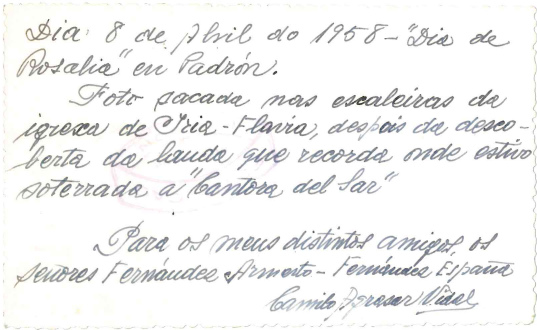 Dia 8 de Abril do 1958 - "Dia de
Rosalia" en Padrón.
Foto sacada nas escaleiras da
igrexa de Iria-Flavia, despois da desco-
berta da lauda que recorda onde estivo
soterrada a "Cantora del Sar"
Para os meus distintos amigos, os
señores Fernández Armesto - Fernández España
Camilo Vidal